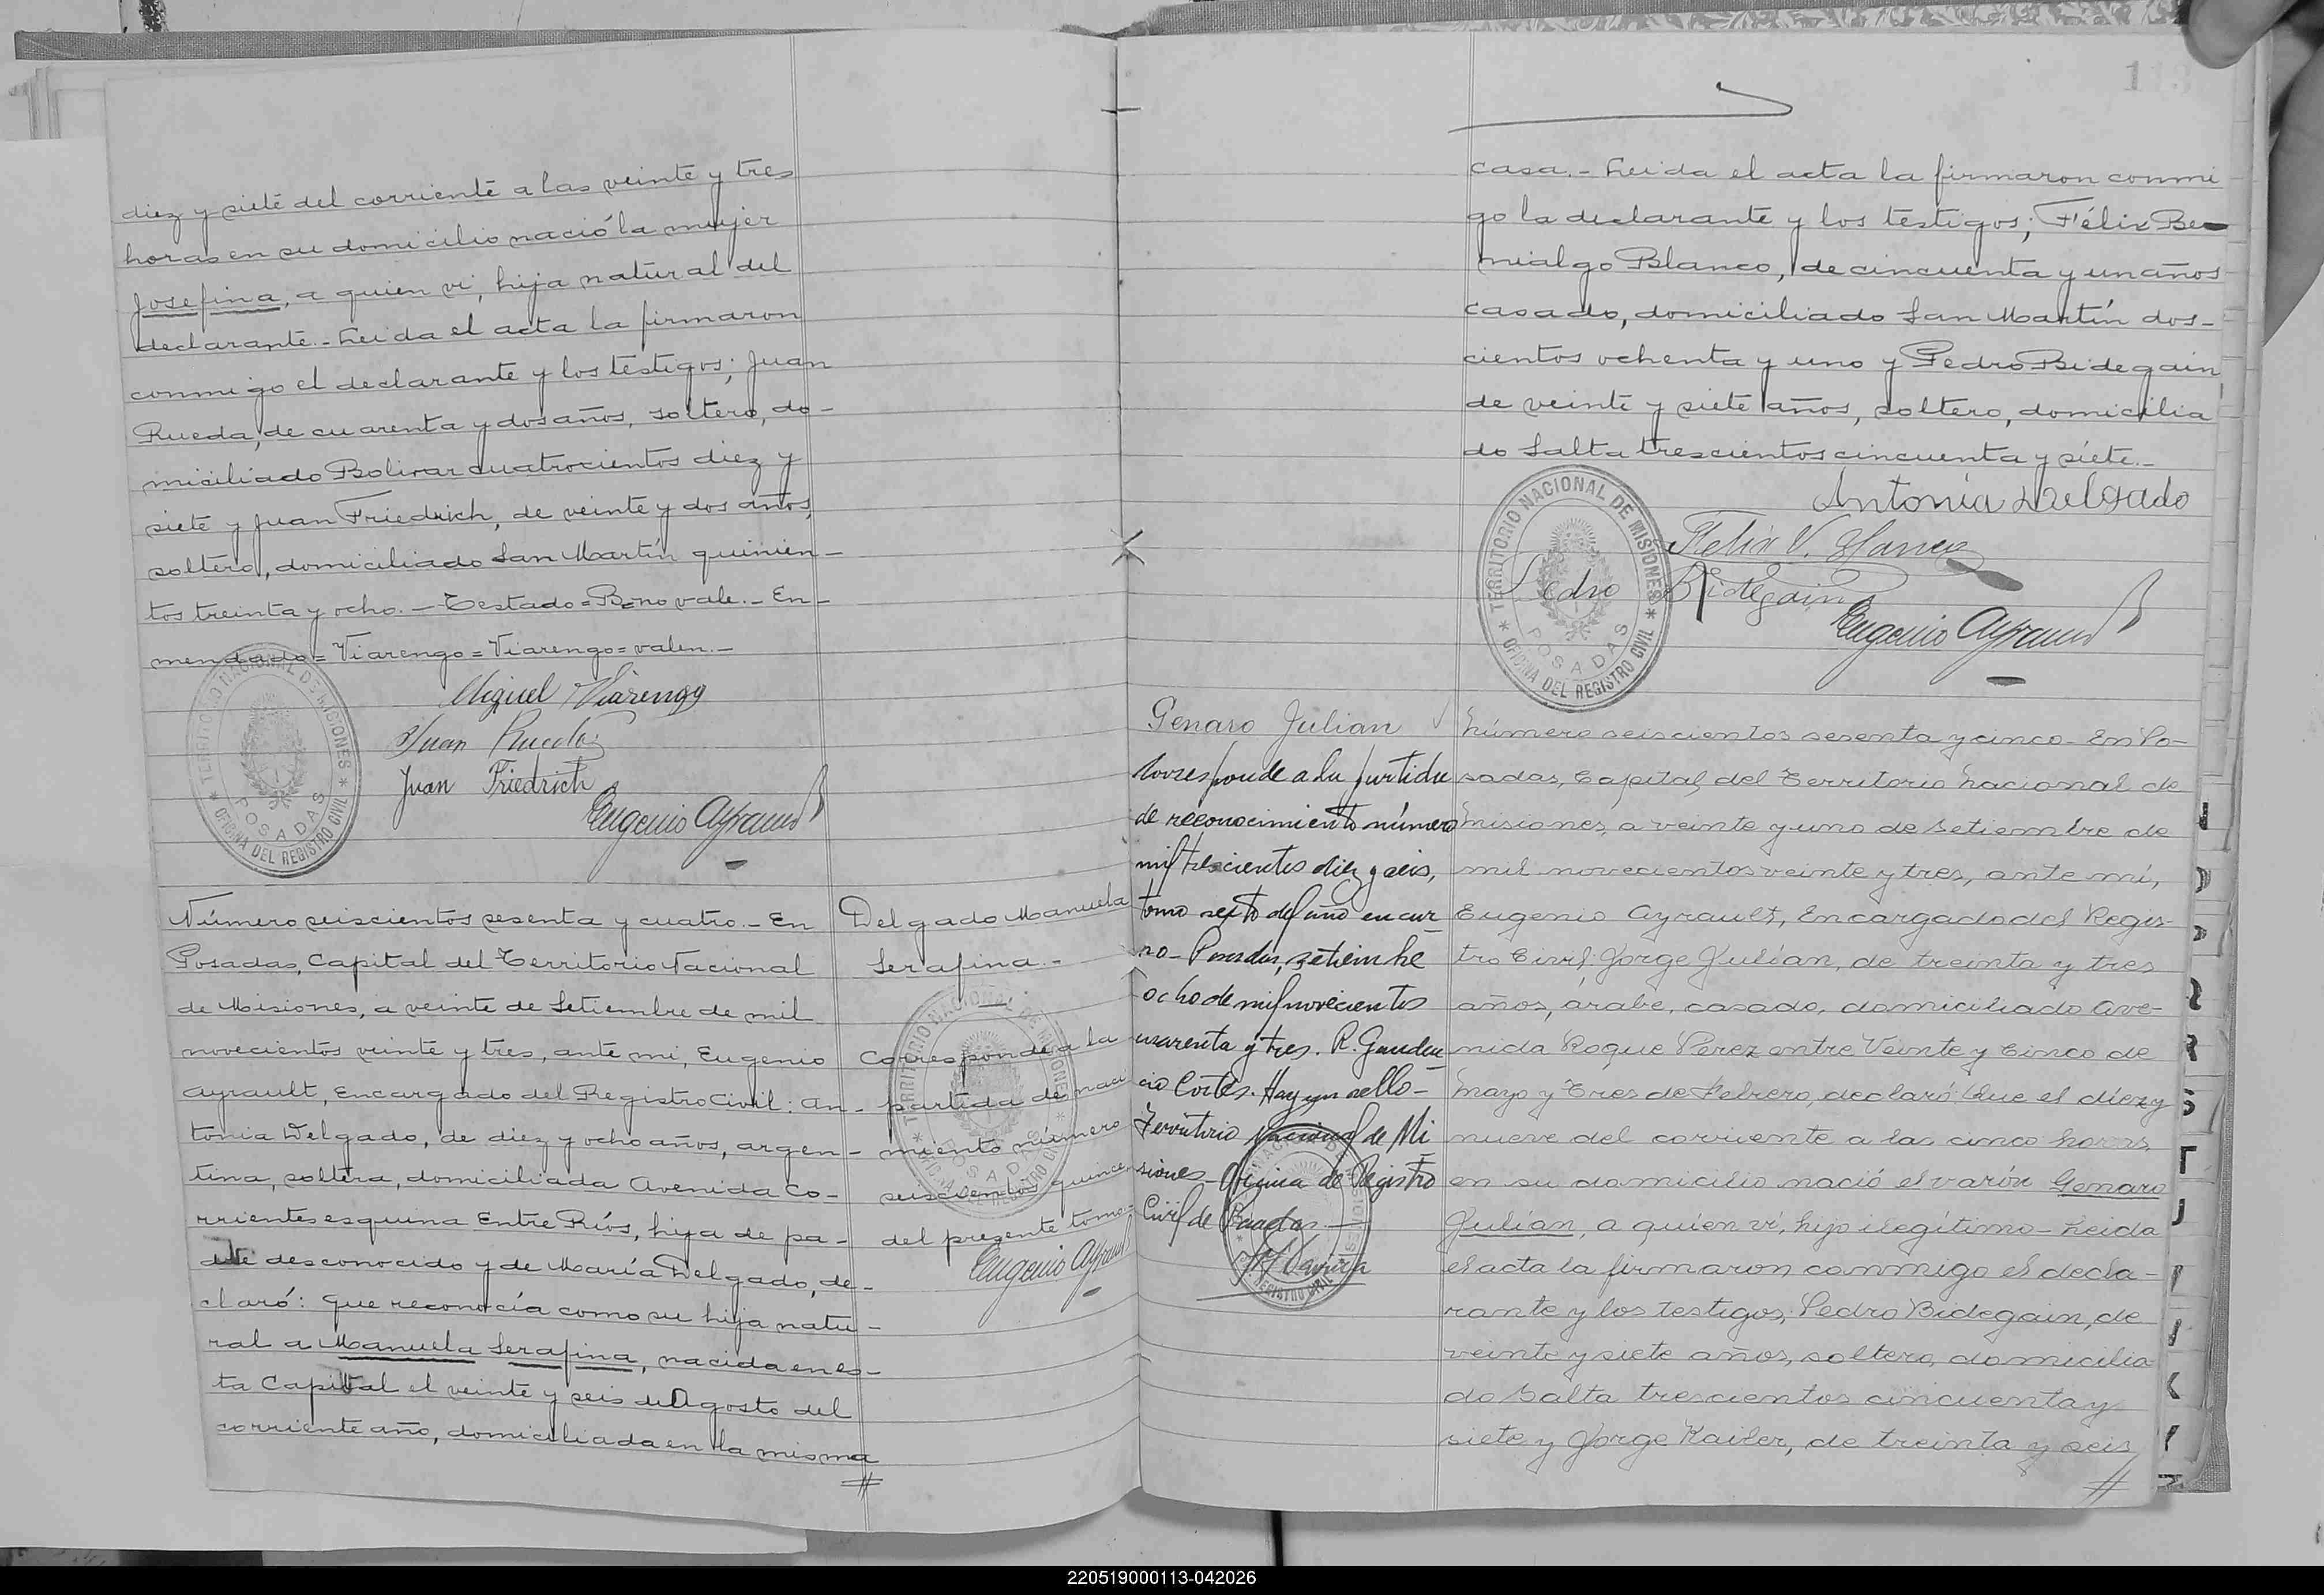 diez y siete del corriente a las veinte y tres
horas en su domicilio nació la mujer
Josefina, a quien vi, hija natural del
declarante.- Leida el acta la firmaron
conmigo el declarante y los testigos; Juan
Rueda, de cuarenta y dos años, soltero, do-
miciliado Bolivar cuatrocientos diez y
siete y Juan Friedrich, de veinte y dos años,
soltero, domiciliado San Martín quinien-
tos treinta y ocho.- Testado=B=no vale.- En-
mendado=Viarengo=Viarengo=valen.-
TERRITORIO NACIONAL DE MISIONES
POSADAS
OFICINA DEL REGISTRO CIVIL
Miguel Viarengo
Juan Rueda
Juan Friedrich
Eugenio Ayrault
Número seiscientos sesenta y cuatro.- En
Posadas, Capital del Territorio Nacional
de Misiones, a veinte de Setiembre de mil
novecientos veinte y tres, ante mi, Eugenio
Ayrault, Encargado del Registro Civil: An-
tonia Delgado, de diez y ocho años, argen-
tina, soltera, domiciliada Avenida Co-
rrientes esquina Entre Ríos, hija de pa-
dre desconocido y de María Delgado, de-
claró: Que reconocía como su hija natu-
ral a Manuela Serafina, nacida en es-
ta Capital el veinte y seis de Agosto del
corriente año, domiciliada en la misma
Delgado Manuela
Serafina.-
Corresponde a la
partida de naci
miento número
seiscientos quince
del presente tomo.
Eugenio Ayrault
TERRITORIO NACIONAL DE MISIONES
POSADAS
OFICINA DEL REGISTRO CIVIL
113
casa.- Leida el acta la firmaron conmi
go la declarante y los testigos; Félix Be-
mialgo Blanco, de cincuenta y un años
casado, domiciliado San Martín dos-
cientos ochenta y uno y Pedro Bidegain
de veinte y siete años, soltero, domicilia
do Salta trescientos cincuenta y siete.-
Antonia Delgado
Felix V. Blanco
Pedro Bidegain
Eugenio Ayrault
TERRITORIO NACIONAL DE MISIONES
POSADAS
OFICINA DEL REGISTRO CIVIL
Genaro Julian
Corresponde a la partida
de reconocimiento número
mil trescientos diez y seis,
tomo sexto del año en cur
so- Posadas, setiembre
ocho de mil novecientos
cuarenta y tres. R. Gauden
cio Cortés. Hay un sello-
Territorio Nacional de Mi
siones- Oficina de Registro
Civil de Posadas.-
Número seiscientos sesenta y cinco- En Po-
sadas, Capital del Territorio Nacional de
Misiones, a veinte y uno de Setiembre de
mil novecientos veinte y tres, ante mí,
Eugenio Ayrault, Encargado del Regis-
tro Civil: Jorge Julián, de treinta y tres
años, árabe, casado, domiciliado Ave-
nida Roque Perez entre Veinte y Cinco de
Mayo y Tres de Febrero, declaró: Que el diez y
nueve del corriente a las cinco horas
en su domicilio nació el varón Genaro
Julián, a quien ví, hijo ilegítimo- Leida
el acta la firmaron conmigo el decla-
rante y los testigos; Pedro Bidegain, de
veinte y siete años, soltero, domicilia
do Salta trescientos cincuenta y
siete y Jorge Kailer, de treinta y seis
220519000113-042026